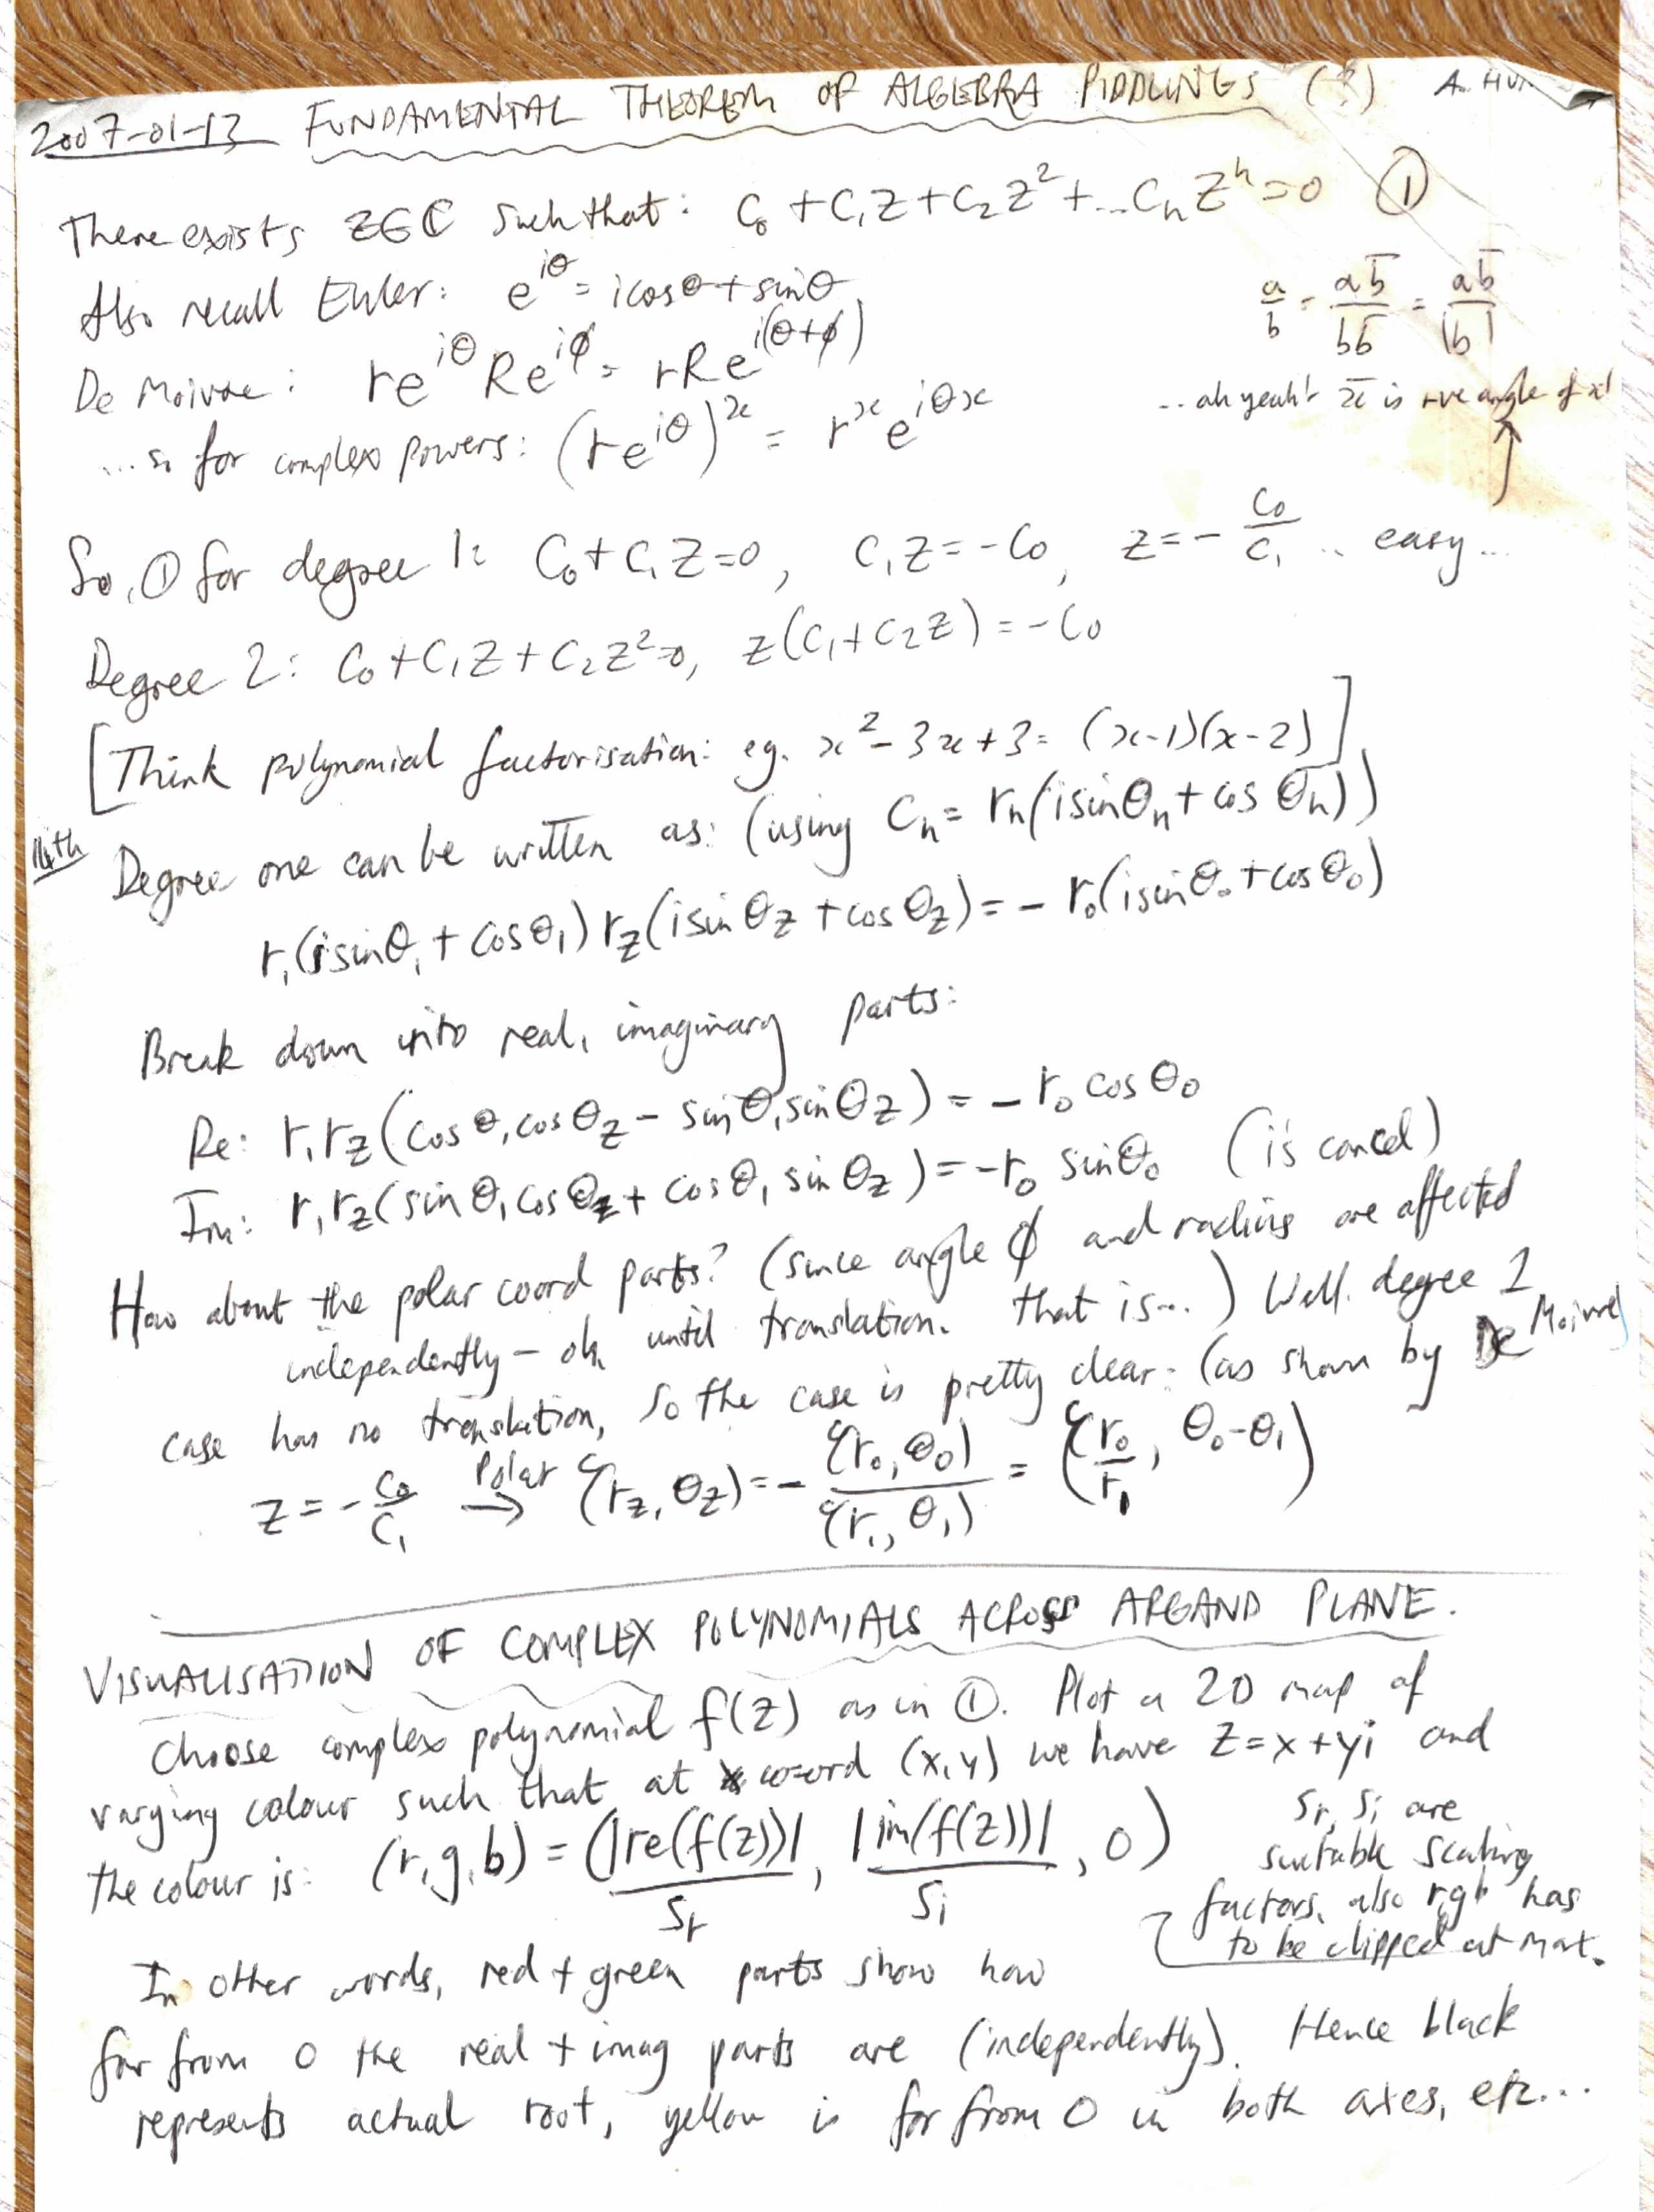 2007-01-13 FUNDAMENTAL THEOREM OF ALGEBRA PIDDLINGS (?) A. HUN
There exists z∈ℂ such that: C₀ + C₁z + C₂z² + ... Cₙzⁿ = 0 ①
Also recall Euler: e^{iθ} = icosθ + sinθ
a/b = ab̅/bb̅ = ab̅/|b|
De Moivre: re^{iθ} Re^{iφ} = rRe^{i(θ+φ)}
... ah yeah! x̅ is -ve angle of x!
...so for complex powers: (re^{iθ})^x = r^x e^{iθx}
So, ① for degree 1: C₀ + C₁z = 0, C₁z = -C₀, z = -C₀/C₁ .. easy...
Degree 2: C₀ + C₁z + C₂z² = 0, z(C₁ + C₂z) = -C₀
[Think polynomial factorisation: eg. x² - 3x + 3 = (x-1)(x-2)]
14th Degree one can be written as: (using Cₙ = rₙ(isinθₙ + cosθₙ))
r₁(isinθ₁ + cosθ₁) r_z(isinθ_z + cosθ_z) = - r₀(isinθ₀ + cosθ₀)
Break down into real, imaginary parts:
Re: r₁r_z(cosθ₁cosθ_z - sinθ₁sinθ_z) = -r₀ cosθ₀
Im: r₁r_z(sinθ₁cosθ_z + cosθ₁sinθ_z) = -r₀ sinθ₀ (i's cancel)
How about the polar coord parts? (since angle φ and radius are affected
independently - ok until translation. that is...) Well. degree 1
case has no translation, so the case is pretty clear: (as shown by De Moivre)
z = -C₀/C₁ Polar → (r_z, θ_z) = - (r₀, θ₀)/(r₁, θ₁) = (r₀/r₁, θ₀-θ₁)
VISUALISATION OF COMPLEX POLYNOMIALS ACROSS ARGAND PLANE.
Choose complex polynomial f(z) as in ①. Plot a 2D map of
varying colour such that at coord (x,y) we have z=x+yi and
the colour is: (r,g,b) = (|re(f(z))|/Sr, |im(f(z))|/Si, 0)
Sr, Si are
suitable scaling
factors, also rgb has
to be clipped at max.
In other words, red + green parts show how
far from 0 the real + imag parts are (independently). Hence black
represents actual root, yellow is far from 0 in both axes, etc...